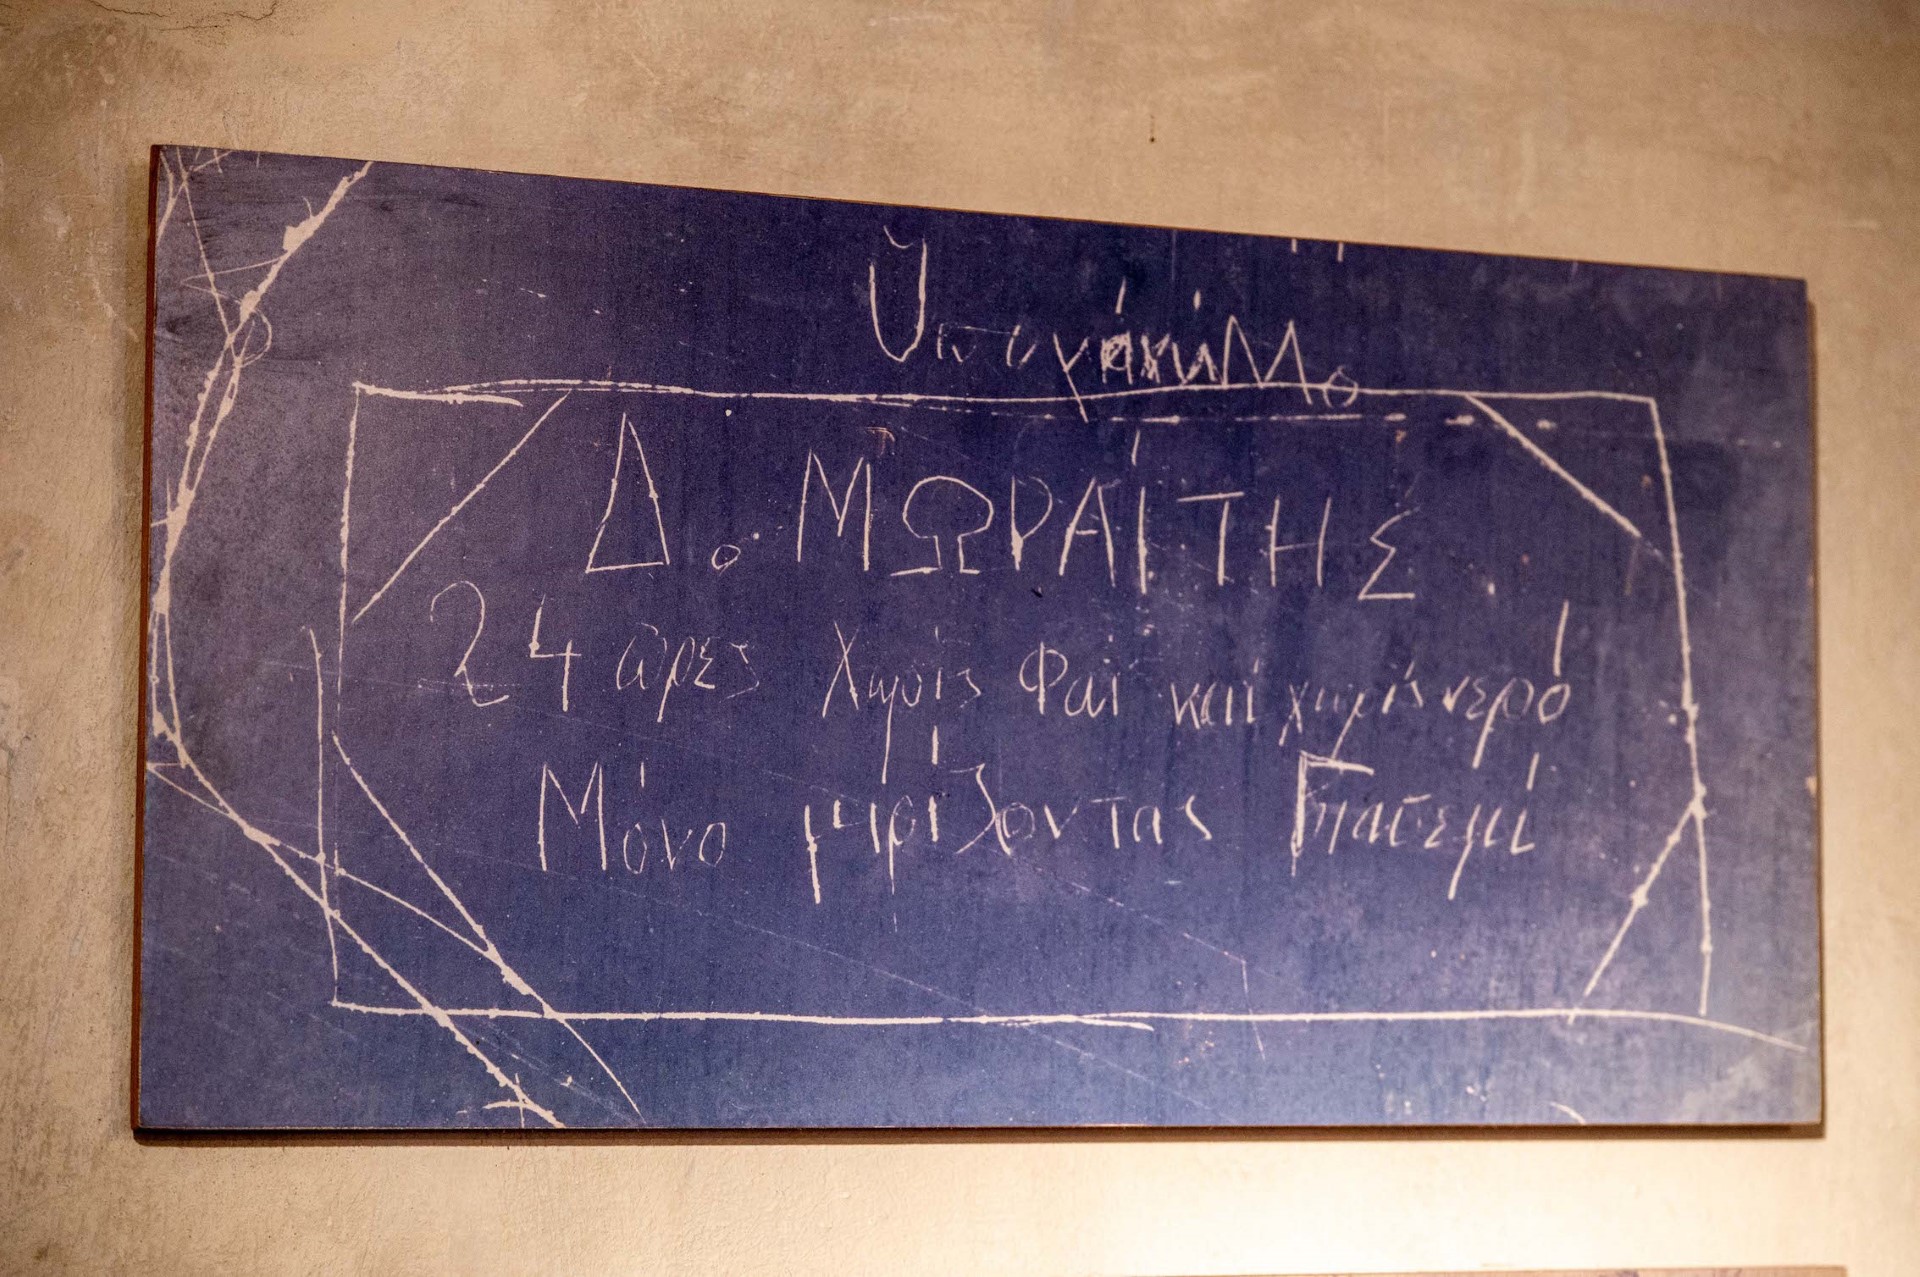 Δ. ΜΩΡΑΪΤΗΣ
24 ὥρες Χωρίς Φαΐ καί χωρίς νερό
Μόνο μυρίζοντας